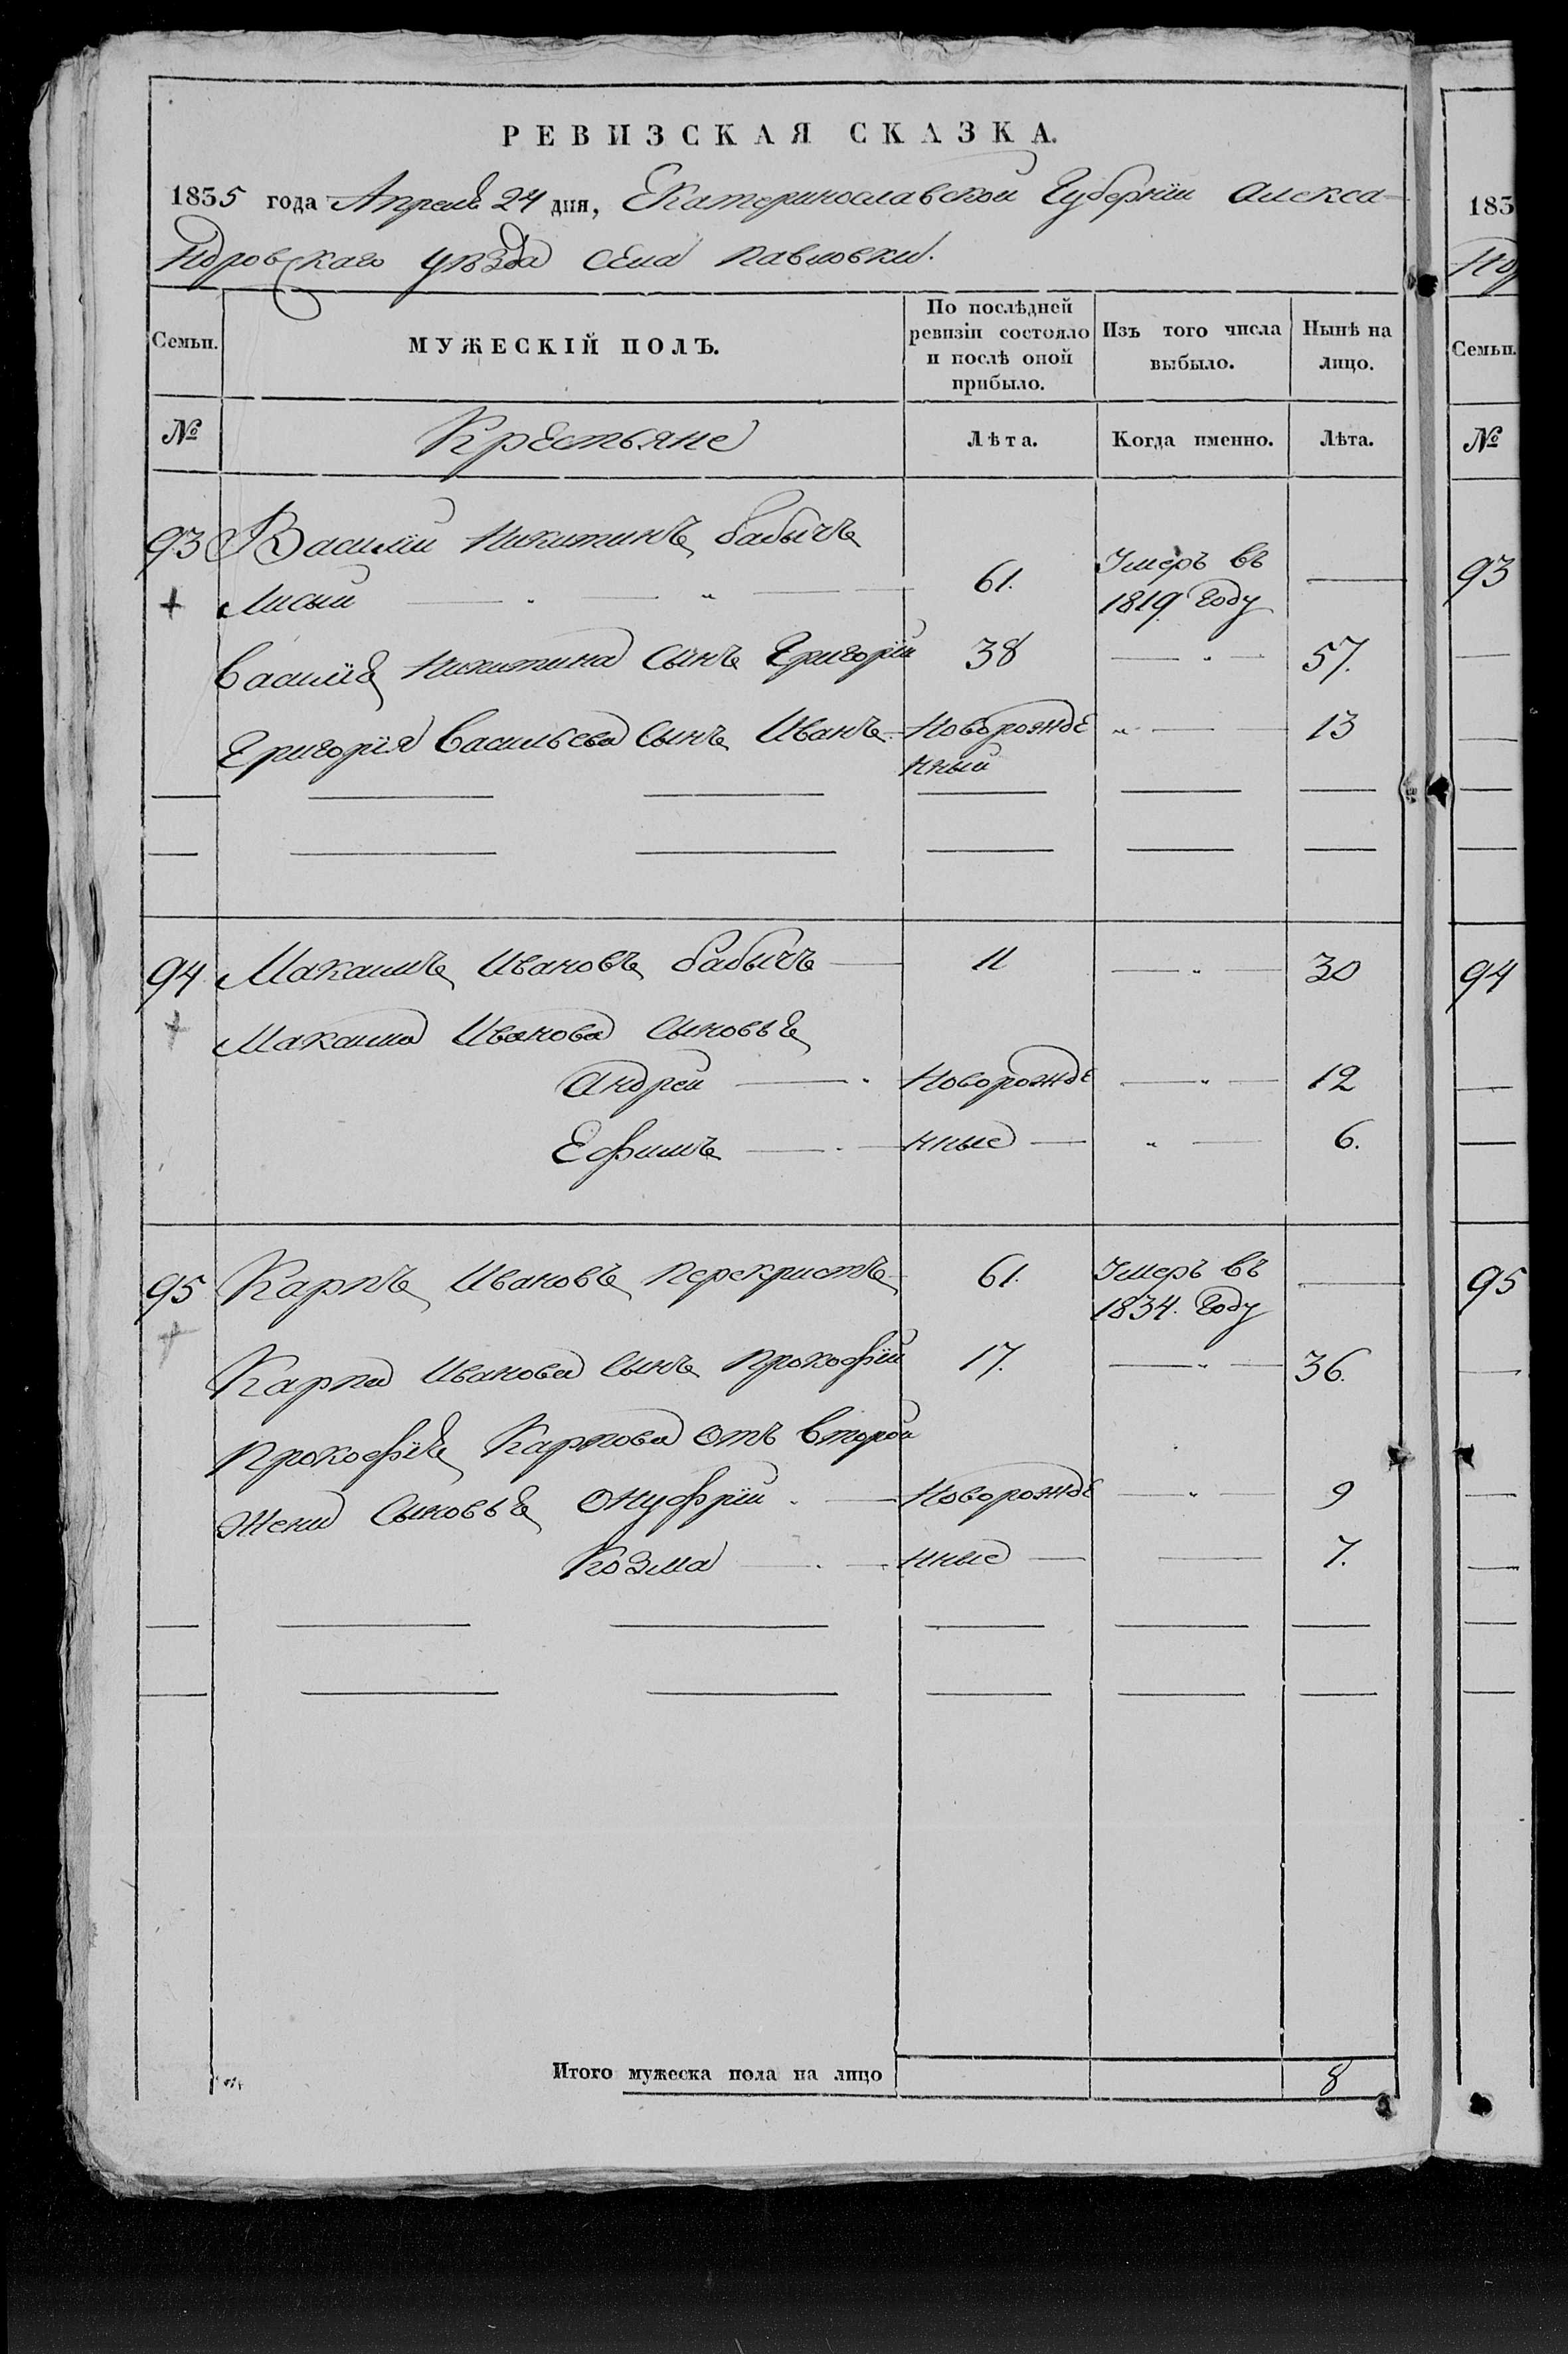 РЕВИЗСКАЯ СКАЗКА.
1835 года Апреля 24 дня, Екатеринославской Губерніи Алекса-
ндровскаго уѣзда села Павловки.
Семьи. МУЖЕСКІЙ ПОЛЪ. По послѣдней ревизіи состояло и послѣ оной прибыло. Изъ того числа выбыло. Нынѣ на лицо.
№ Крестьяне Лѣта. Когда именно. Лѣта.
93 Василій Никитинъ Бабычъ
Лисый 61. Умеръ въ 1819 Году
Василія Никитина Сынъ Григорій 38 57.
Григорія Васильева Сынъ Иванъ Новорожде 13
нный
94 Макаимъ Ивановъ Бабычъ 11 30
Макаима Иванова Сыновья
Андрей Новорожде 12
Ефимъ нные 6.
95 Карпъ Ивановъ Перекристъ 61. Умеръ въ
1834. Году
Карпа Иванова Сынъ Прокофій 17. 36.
Прокофія Карпова отъ второй
жены Сыновья Онуфрій Новорожде 9
Козма нные 7.
Итого мужеска пола на лицо 8
183
Семьи.
№
93
94
95